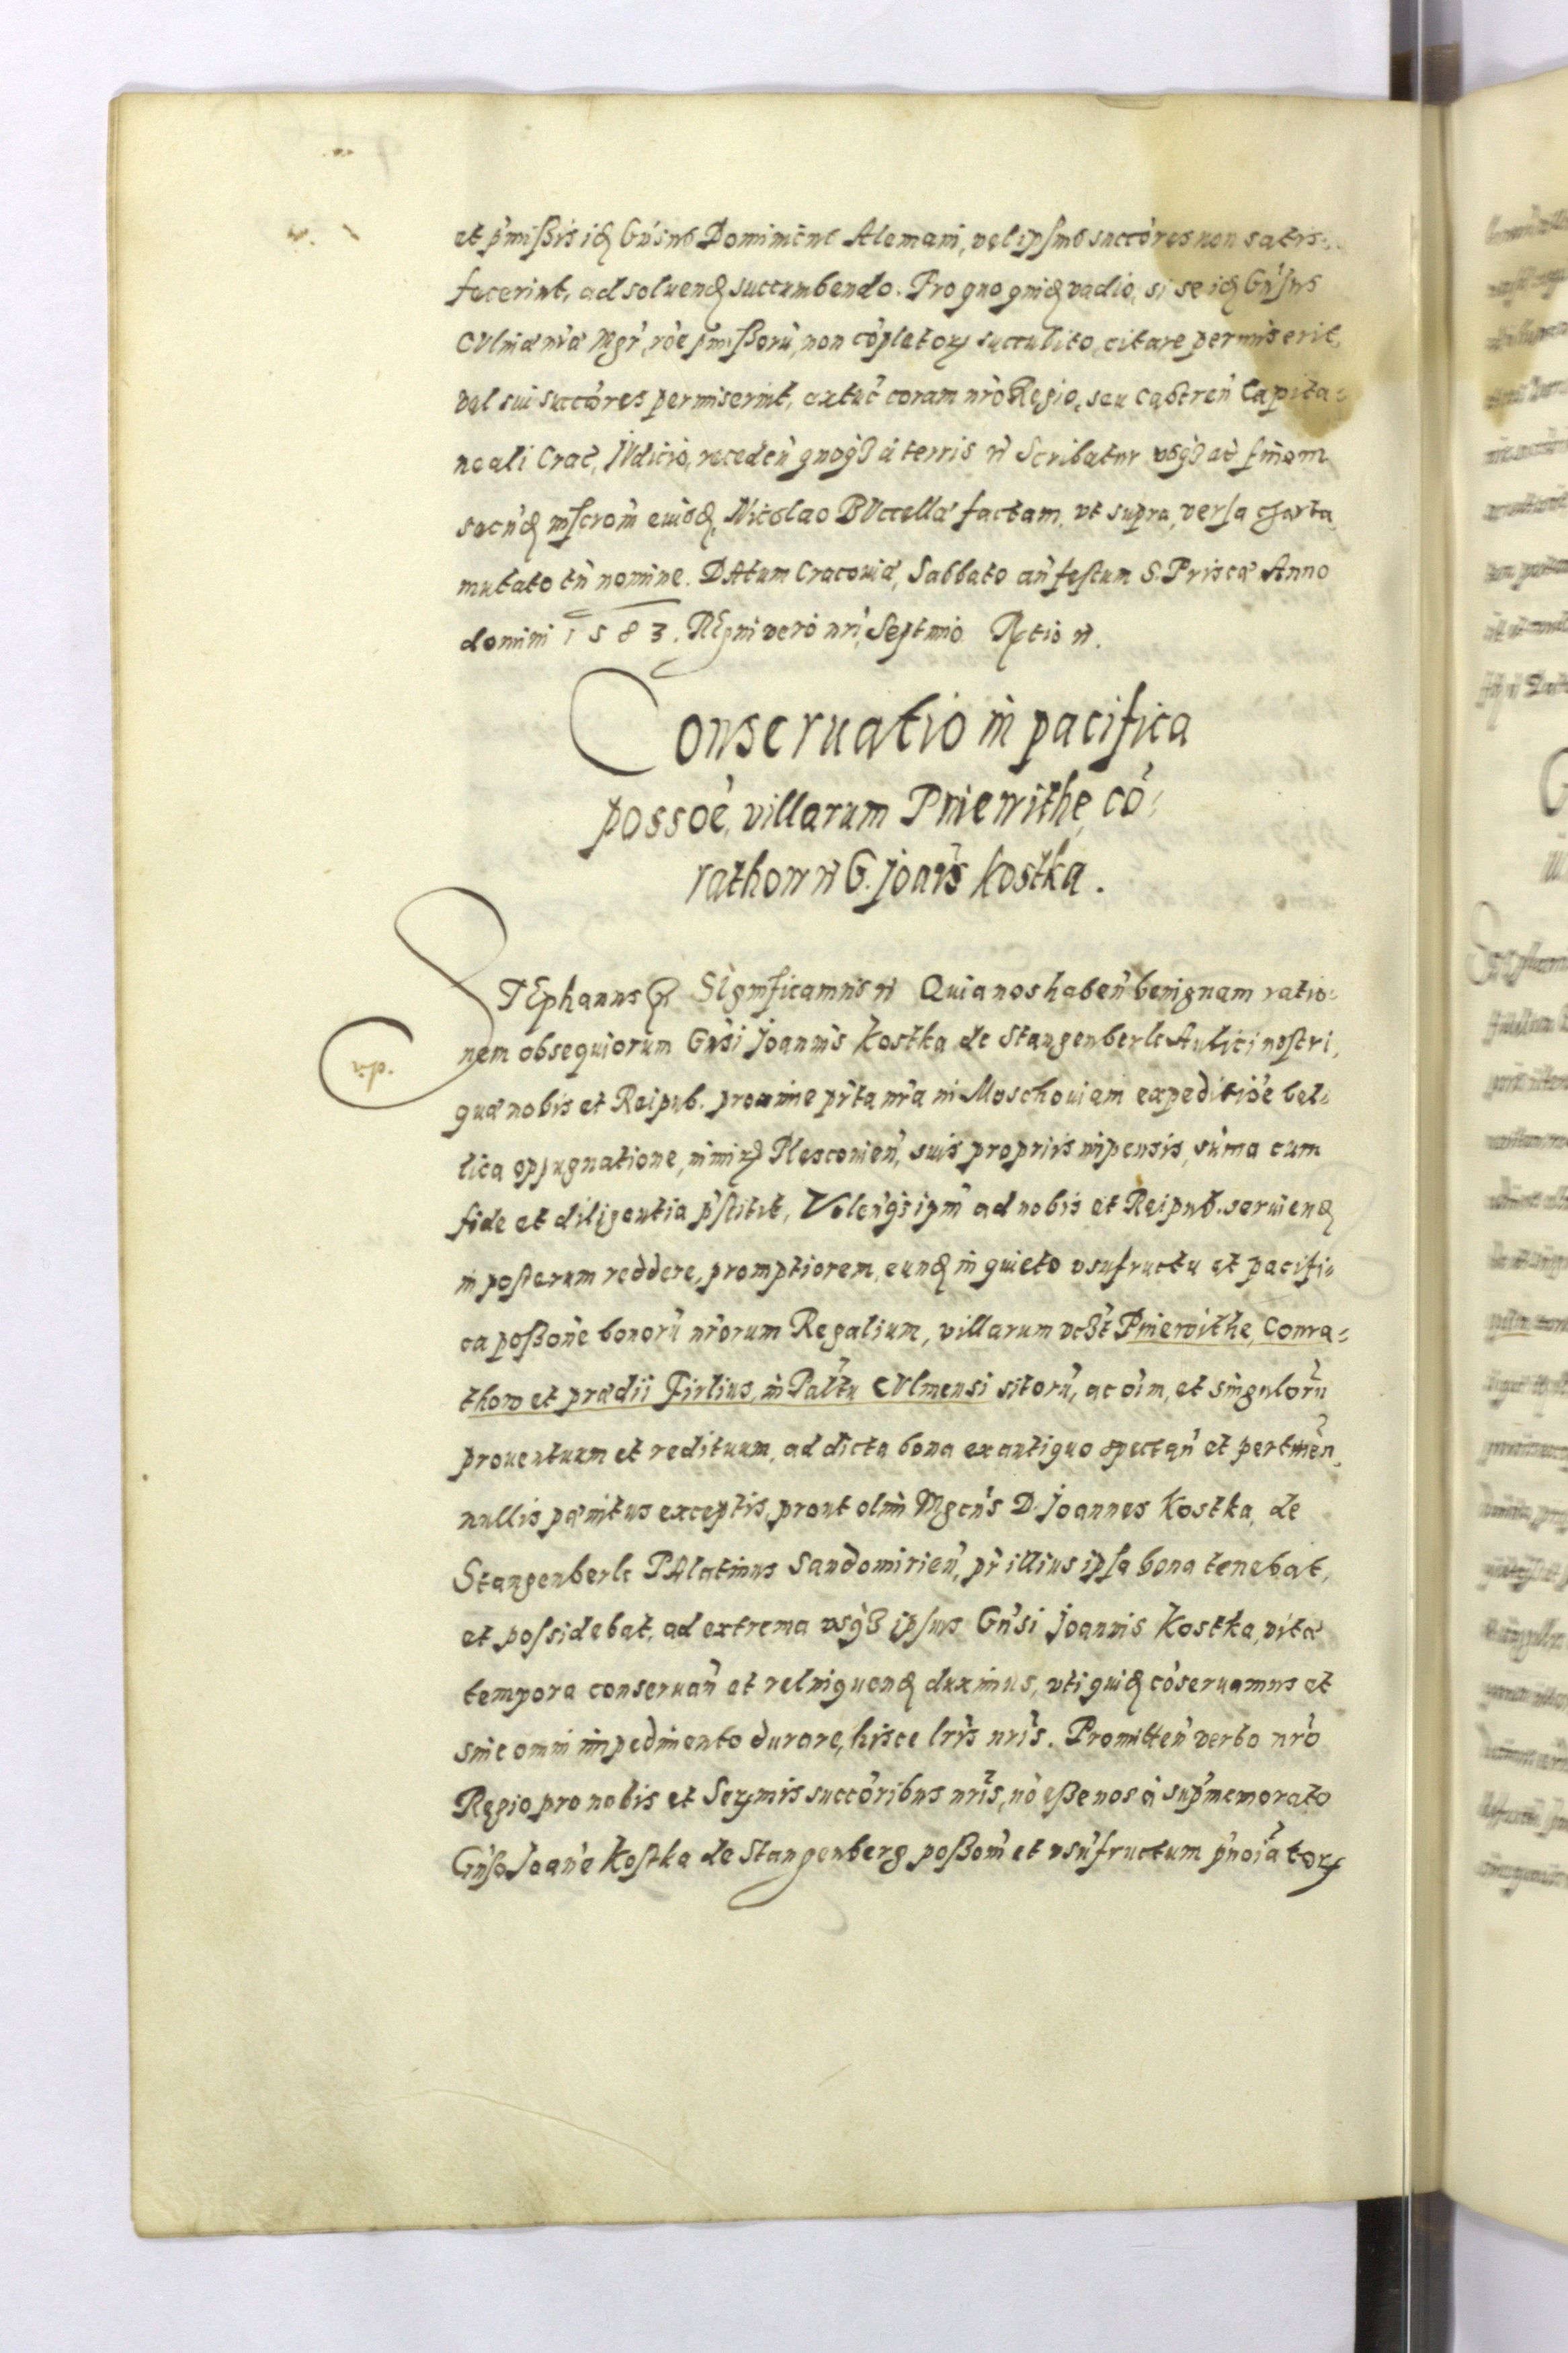 et p'mißis id Gn'sus Dominicus Alemani, vel ipsius succ'ores non satis:
fecerint, ad soluend succumbendo. Pro quo quid vadio, si se id Gn'sus
pmißorū, non cōpletorum succubito, citare permiserit,
vel sui succōres permiserint, extuc coram nr'o Regio, seu castren̄ Capita:
neali Crac, IVdicio, receden̄ quoqȝ à terris n Scribatur vsqȝ ad finem
secn̄d eiusd, Nicolao BVccella factam, vt supra, versa charta
mutato tn̄ nomine. DAtum Cracouiæ, Sabbato an̄ festum S. Priscæ Anno
domini 1583. REgni vero nr̄i, Septimo Rtio n.
Conseruatio in pacifica
possoē, villarum Pniewithe, cō:
rathow n G. Joan̄is Kostka.
STEphanus Significamus n Quia nos haben̄ benignam ratio:
nem obsequiorum Gn̄si Joannis Kostka de Stangenberk Aulici nostri,
quæ nobis et Reipub. proxime pr̄ta nr̄a in Moschouiam expeditiōe bel:
lica oppugnatione, nimir Plesconien̄, suis propriis inpensis, sūma cum
fide et diligentia p̄stitit, Volen̄qȝ ipm̄ ad nobis et Reipub. seruiend
in posterum reddere, promptiorem, eund in quieto vsufructu et pacifi:
ca poßone bonorū nr̄orum Regalium, villarum vcȝt Pniewithe, Conra:
thow et prædii Firlius, in Pal̄tu CVlmensi sitorū, ac oīm, et singulorū
prouentuum et redituum, ad dicta bona ex antiquo spectan̄ et pertinēn,
nullis pænitus exceptis, prout olim Mgcn̄s D. Joannes Kostka, de
Stangenberk PAlatinus Sandomirien̄, pr̄ illius ipsa bona tenebat,
et possidebat, ad extrema vsqȝ ipsius Gn̄si Joannis Kostka, vitæ
tempora conseruan̄ et relinquend duximus, vti quid cōseruamus et
sine omni impedimento durare, hisce lr̄is nr̄is. Promitten̄ verbo nr̄o
Regio pro nobis et Sermis succōribus nr̄is, nō eße nos à sup̄memorato
Gn̄so Joan̄e Kostka de Stangenberg poßom̄ et vsūfructum p̄noīatorum